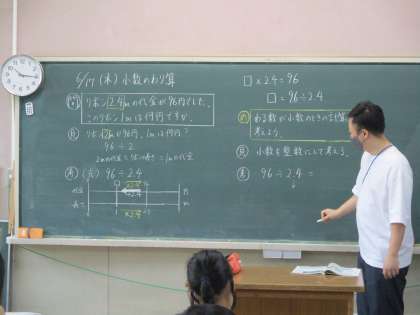 5/17 (木) 小数のわり算
リボン2.4mの代金が96円でした。
このリボン1mは何円ですか。
リボン2mが96円、1mは何円?
96÷2
2mの代金÷リボンの長さ=1mの代金
(式) 96÷2.4
代金
円
長さ
m
×2.4
□×2.4=96
□=96÷2.4
め
わる数が小数のときの計算を
考えよう。
見
小数を整数にして考える。
考
96÷2.4=